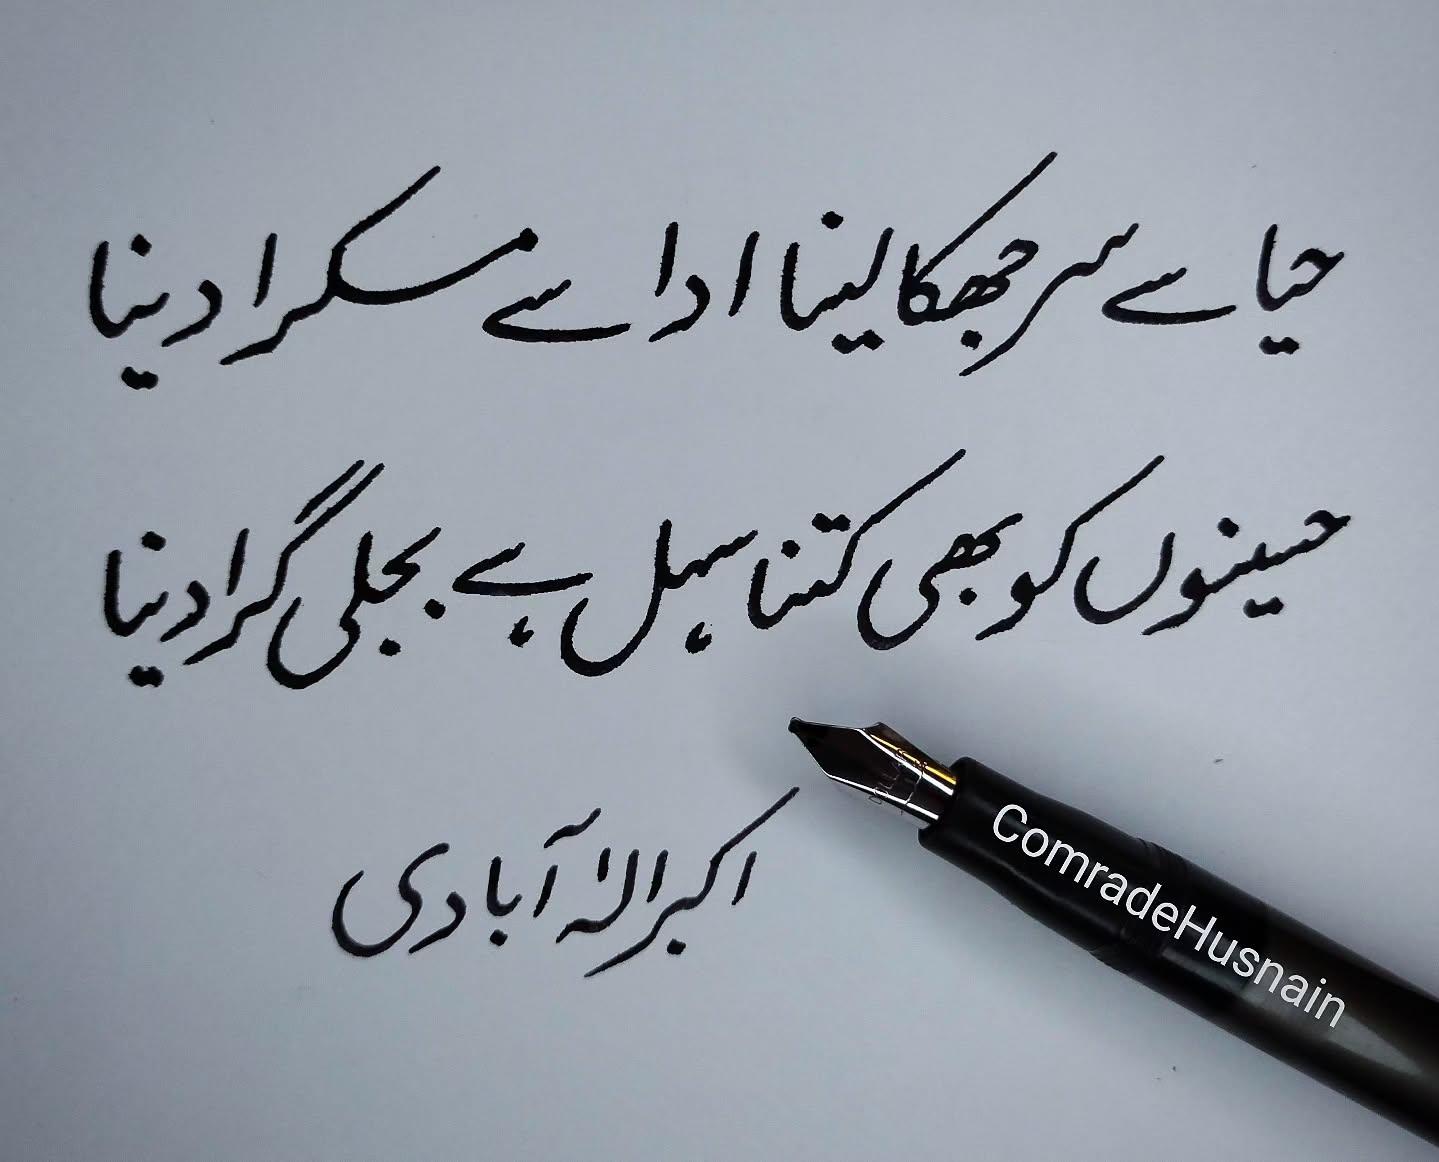 حیا سے سر جھکا لینا ادا سے مسکرا دینا
حسینوں کو بھی کتنا سہل ہے بجلی گرا دینا
اکبر الہٰ آبادی
ComradeHusnain